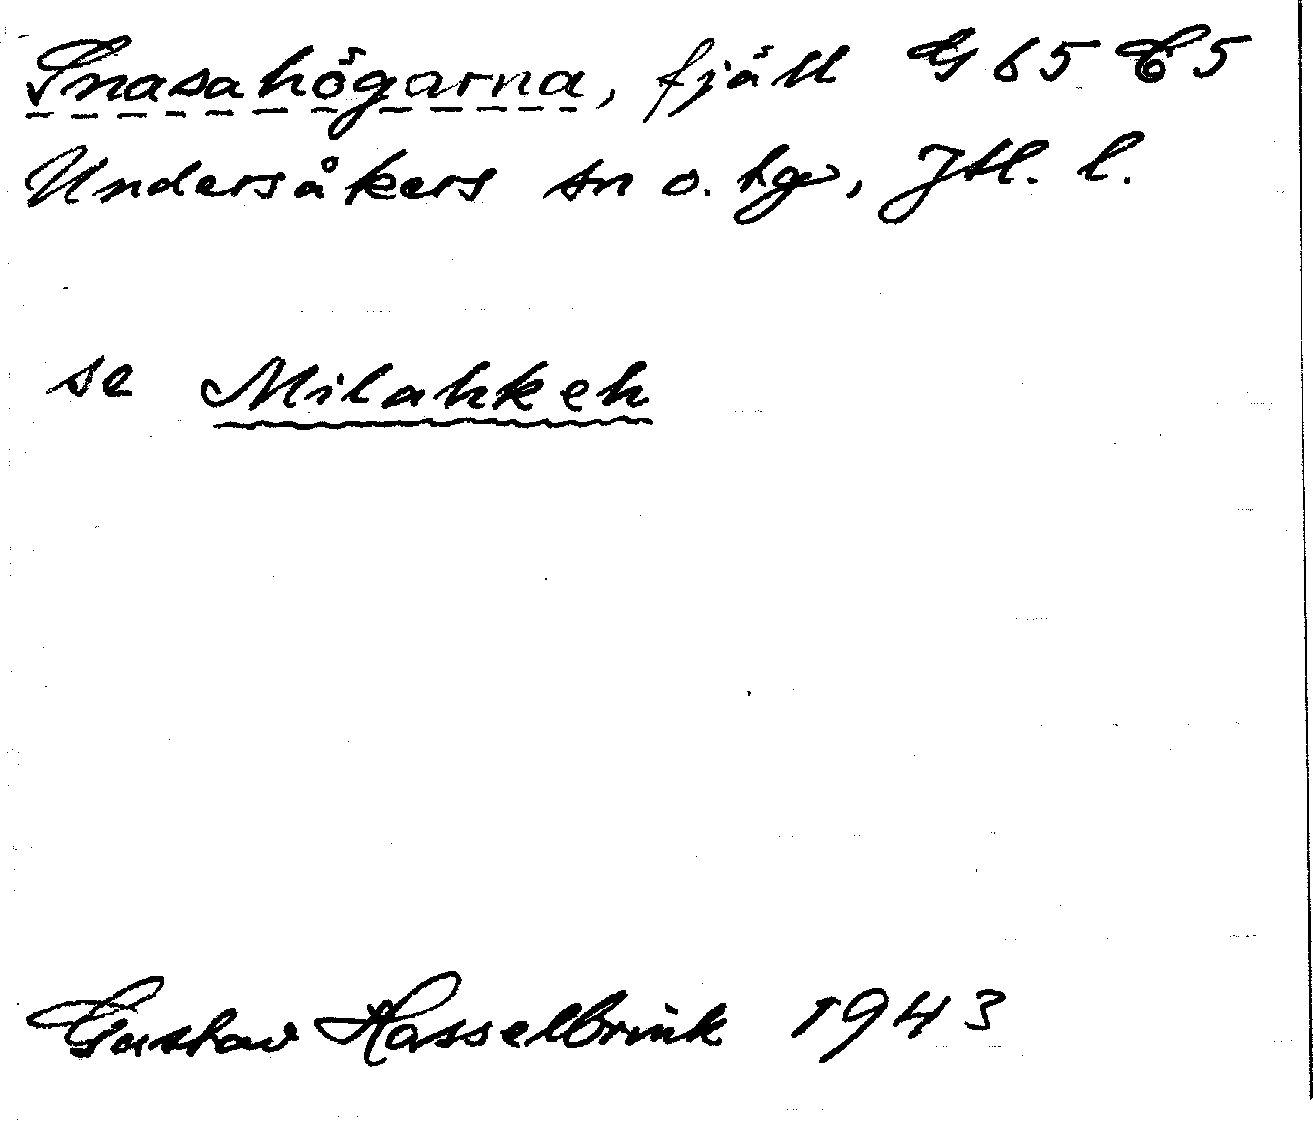 Snasahögarna, fjäll G 65 C5
Undersåkers sn o. tgv, Jtl. l.
se Milahkeh
Gustav Hasselbrink 1943